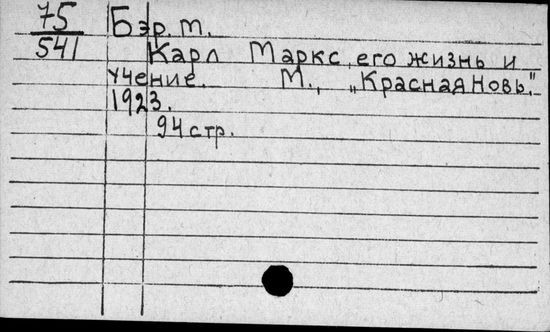 75 Бэр. М.
541 Карл Маркс, его жизнь и
учение. М., „Красная Новь."
1923.
94 стр.